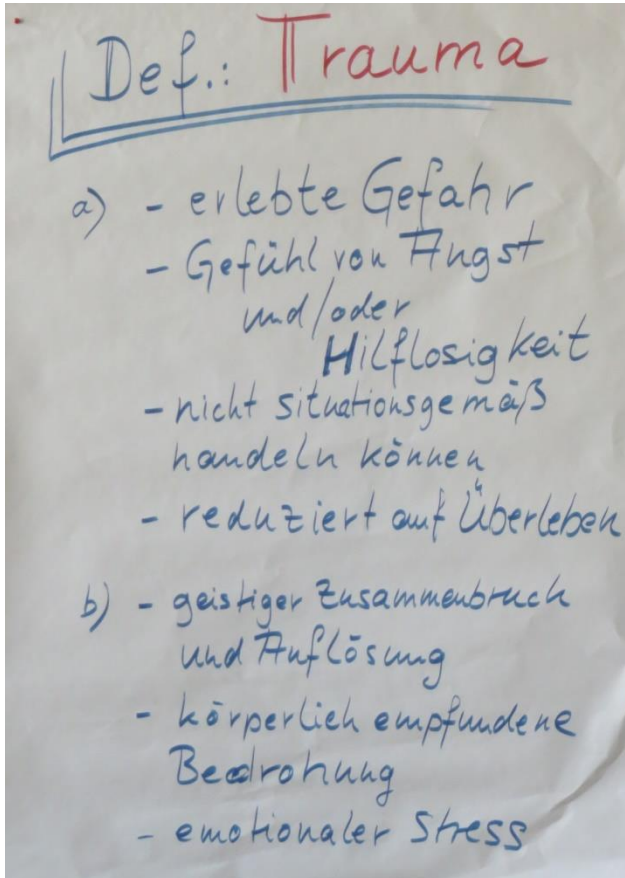 Def.: Trauma
a) - erlebte Gefahr
- Gefühl von Angst
und/oder
Hilflosigkeit
- nicht situationsgemäß
handeln können
- reduziert auf Überleben
b) - geistiger Zusammenbruch
und Auflösung
- körperlich empfundene
Bedrohung
- emotionaler Stress